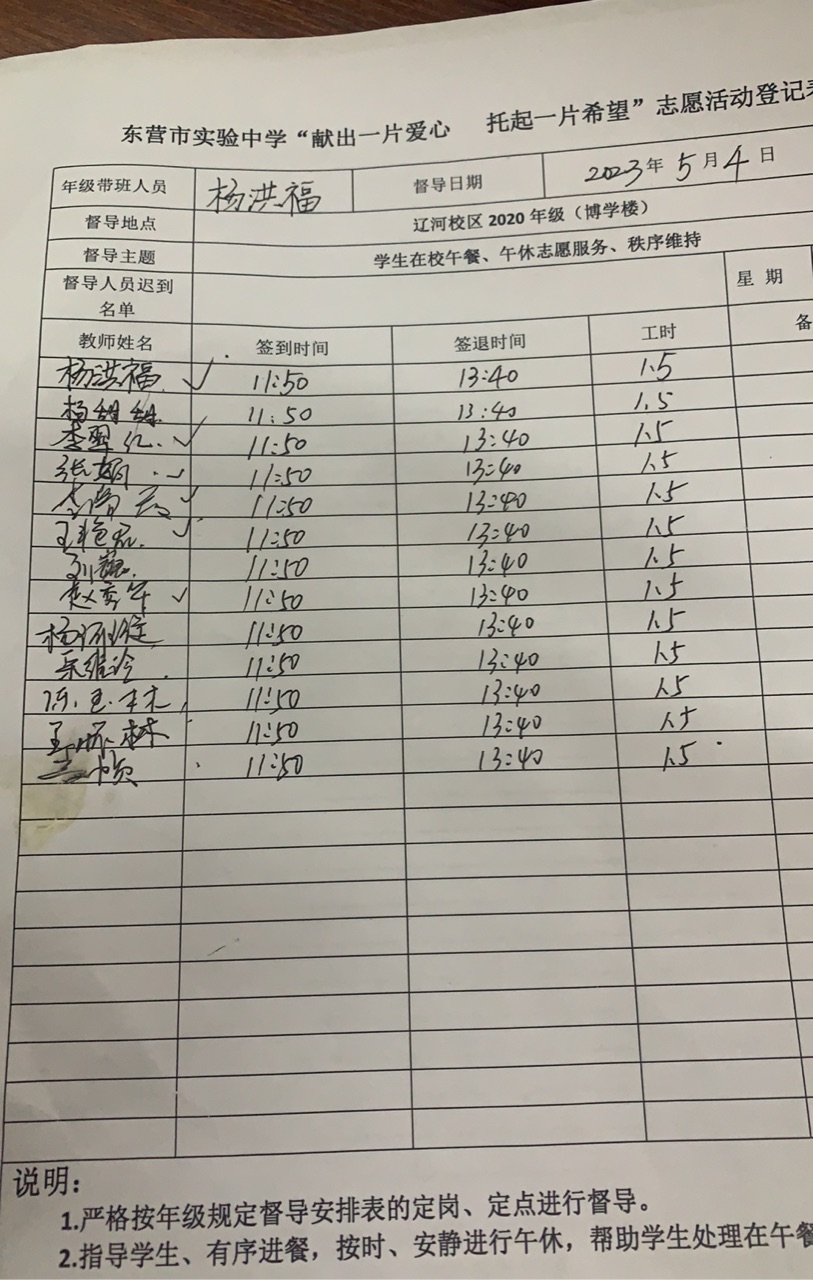 东营市实验中学“献出一片爱心 托起一片希望”志愿活动登记表
年级带班人员 杨洪福 督导日期 2023年5月4日
督导地点 辽河校区 2020 年级（博学楼）
督导主题 学生在校午餐、午休志愿服务、秩序维持
督导人员迟到名单 星 期
教师姓名 签到时间 签退时间 工时 备
杨洪福 ✓ 11:50 13:40 1.5
杨甜甜 11:50 13:40 1.5
11:50 13:40 1.5
张娟 11:50 13:40 1.5
11:50 13:40 1.5
王艳 11:50 13:40 1.5
刘巍 11:50 13:40 1.5
赵秀军 ✓ 11:50 13:40 1.5
杨 11:50 13:40 1.5
11:50 13:40 1.5
陈玉木 11:50 13:40 1.5
王怀林 11:50 13:40 1.5
11:50 13:40 1.5
说明：
1.严格按年级规定督导安排表的定岗、定点进行督导。
2.指导学生、有序进餐，按时、安静进行午休，帮助学生处理在午餐